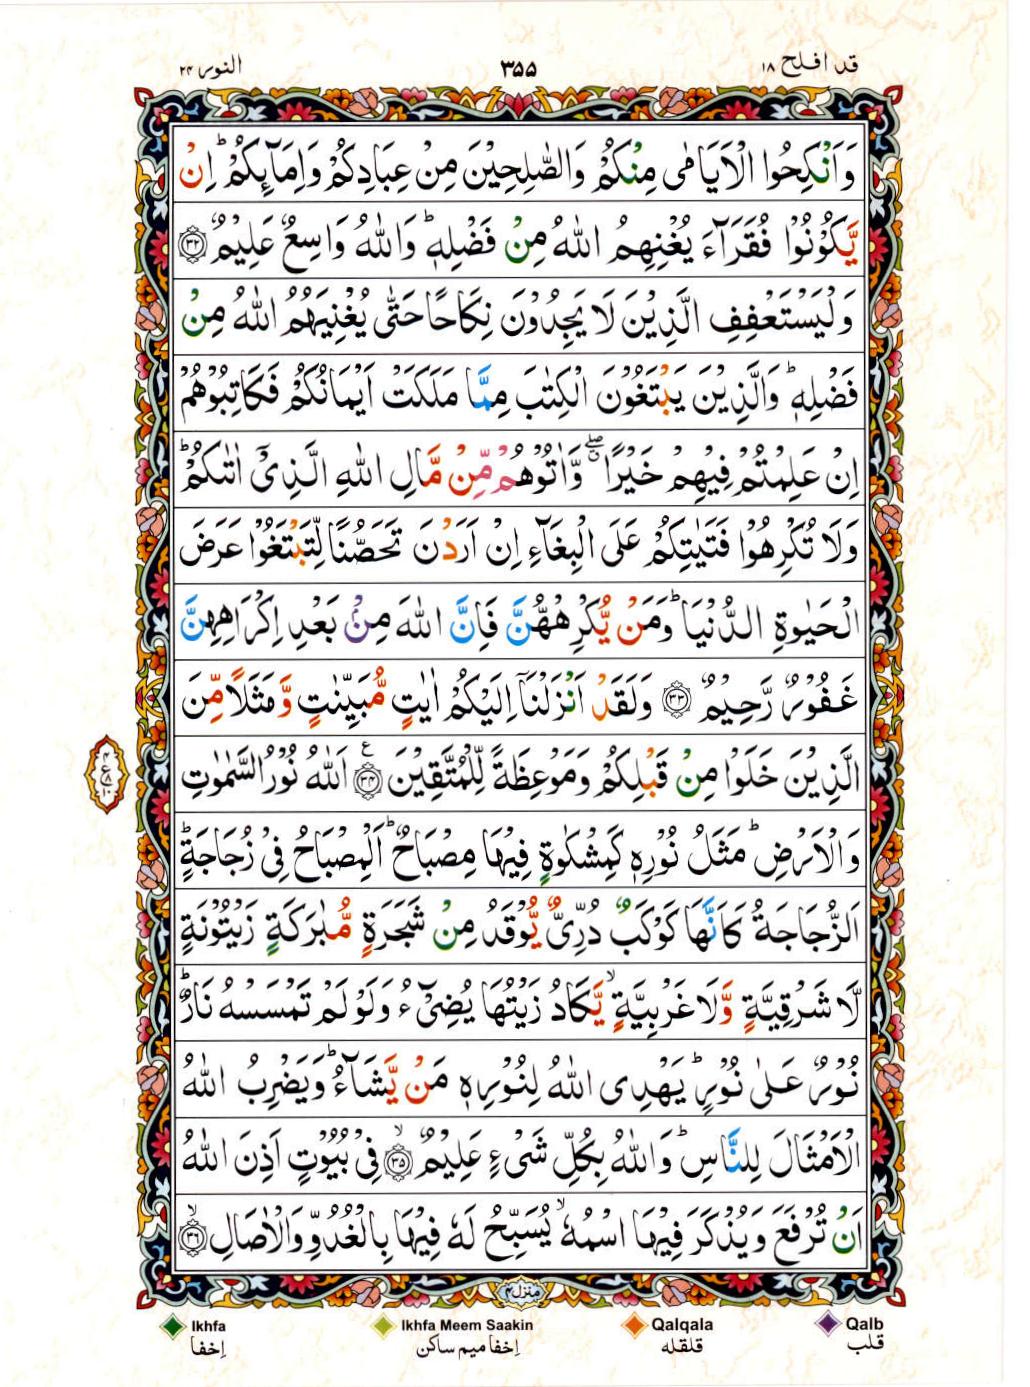 قد افلح ١٨
٣٥٥
النور ٢٤
وَاَنْكِحُوا الْاَيَامٰى مِنْكُمْ وَالصّٰلِحِيْنَ مِنْ عِبَادِكُمْ وَاِمَآئِكُمْ ؕ اِنْ
يَّكُوْنُوْا فُقَرَآءَ يُغْنِهِمُ اللّٰهُ مِنْ فَضْلِهٖ ؕ وَاللّٰهُ وَاسِعٌ عَلِيْمٌ ۝٣٢
وَلْيَسْتَعْفِفِ الَّذِيْنَ لَا يَجِدُوْنَ نِكَاحًا حَتّٰى يُغْنِيَهُمُ اللّٰهُ مِنْ
فَضْلِهٖ ؕ وَالَّذِيْنَ يَبْتَغُوْنَ الْكِتٰبَ مِمَّا مَلَكَتْ اَيْمَانُكُمْ فَكَاتِبُوْهُمْ
اِنْ عَلِمْتُمْ فِيْهِمْ خَيْرًا ۖ وَّاٰتُوْهُمْ مِّنْ مَّالِ اللّٰهِ الَّذِىْۤ اٰتٰىكُمْ ؕ
وَلَا تُكْرِهُوْا فَتَيٰتِكُمْ عَلَى الْبِغَآءِ اِنْ اَرَدْنَ تَحَصُّنًا لِّتَبْتَغُوْا عَرَضَ
الْحَيٰوةِ الدُّنْيَا ؕ وَمَنْ يُّكْرِهْهُّنَّ فَاِنَّ اللّٰهَ مِنْۢ بَعْدِ اِكْرَاهِهِنَّ
غَفُوْرٌ رَّحِيْمٌ ۝٣٣ وَلَقَدْ اَنْزَلْنَاۤ اِلَيْكُمْ اٰيٰتٍ مُّبَيِّنٰتٍ وَّمَثَلًا مِّنَ
الَّذِيْنَ خَلَوْا مِنْ قَبْلِكُمْ وَمَوْعِظَةً لِّلْمُتَّقِيْنَ ۝٣٤ ع اَللّٰهُ نُوْرُ السَّمٰوٰتِ
٤
ع ٨
١٠
وَالْاَرْضِ ؕ مَثَلُ نُوْرِهٖ كَمِشْكٰوةٍ فِيْهَا مِصْبَاحٌ ؕ اَلْمِصْبَاحُ فِىْ زُجَاجَةٍ ؕ
اَلزُّجَاجَةُ كَاَنَّهَا كَوْكَبٌ دُرِّىٌّ يُّوْقَدُ مِنْ شَجَرَةٍ مُّبٰرَكَةٍ زَيْتُوْنَةٍ
لَّا شَرْقِيَّةٍ وَّلَا غَرْبِيَّةٍ ۙ يَّكَادُ زَيْتُهَا يُضِىْٓءُ وَلَوْ لَمْ تَمْسَسْهُ نَارٌ ؕ
نُوْرٌ عَلٰى نُوْرٍ ؕ يَهْدِى اللّٰهُ لِنُوْرِهٖ مَنْ يَّشَآءُ ؕ وَيَضْرِبُ اللّٰهُ
الْاَمْثَالَ لِلنَّاسِ ؕ وَاللّٰهُ بِكُلِّ شَىْءٍ عَلِيْمٌ ۙ ۝٣٥ فِىْ بُيُوْتٍ اَذِنَ اللّٰهُ
اَنْ تُرْفَعَ وَيُذْكَرَ فِيْهَا اسْمُهٗ ۙ يُسَبِّحُ لَهٗ فِيْهَا بِالْغُدُوِّ وَالْاٰصَالِ ۙ ۝٣٦
منزل ٤
Ikhfa
اِخفا
Ikhfa Meem Saakin
اِخفا میم ساکن
Qalqala
قلقله
Qalb
قلب